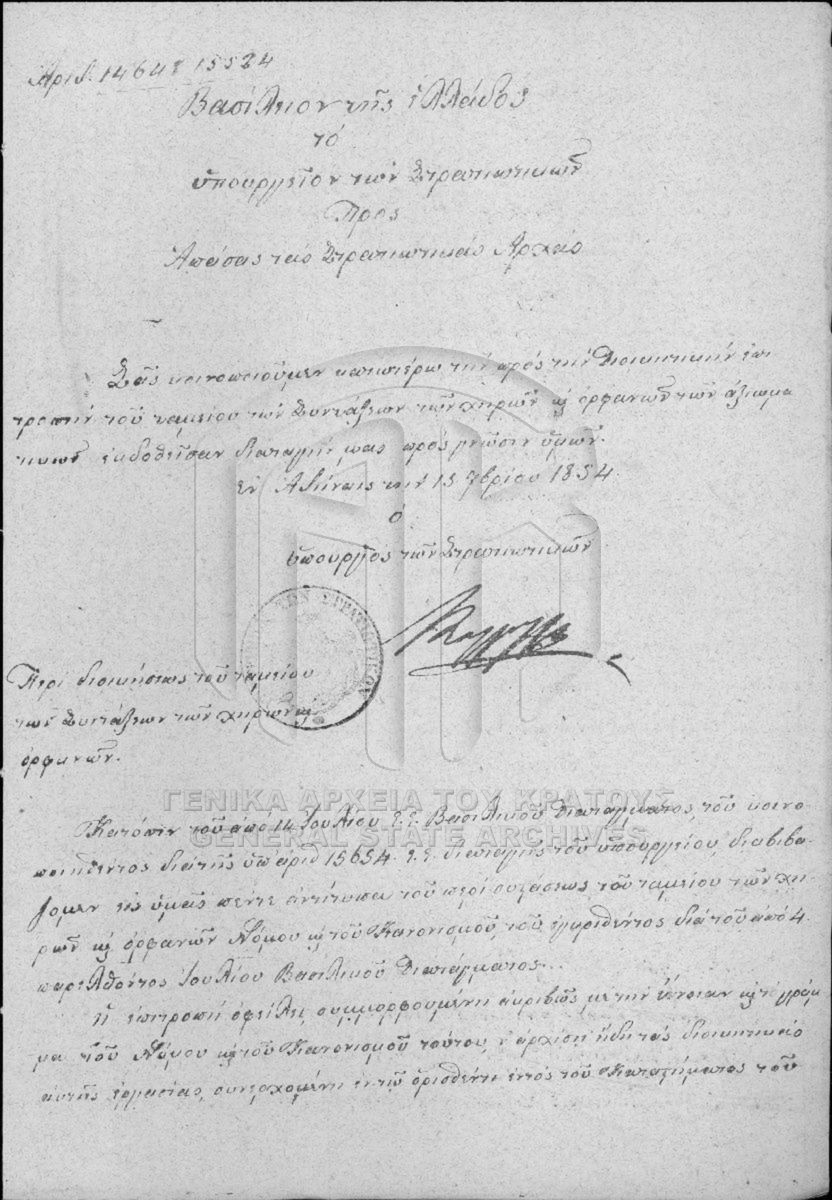 Αριθ. 14648 15524
Βασίλειον της Ελλάδος
το
υπουργείον των Στρατιωτικών
Προς
Απάσας τας Στρατιωτικάς Αρχάς
Σας κοινοποιούμεν κατωτέρω την προς την Διοικητικήν επι
τροπήν του ταμείου των Συντάξεων των χηρών κ ορφανών των αξιωμα
τικών εκδοθείσαν διαταγήν μας προς γνώσιν υμών.
Εν Αθήναις την 15 7βρίου 1854.
ο
υπουργός των Στρατιωτικών
ΤΩΝ ΣΤΡΑΤΙΩΤΙΚΩΝ
Περί διοικήσεως του ταμείου
των Συντάξεων των χηρών κ
ορφανών.
ΓΕΝΙΚΑ ΑΡΧΕΙΑ ΤΟΥ ΚΡΑΤΟΥΣ
GENERAL STATE ARCHIVES
Κατόπιν του από 14 Ιουλίου ε.ε. Βασιλικού Διατάγματος, του κοινο
ποιηθέντος διά της υπ αριθ 15654. ε.ε. διαταγής του υπουργείου, διαβιβά
ζομεν εις υμάς πέντε αντίτυπα του περί συστάσεως του ταμείου των χη
ρών κ ορφανών Νόμου κ του Κανονισμού, του εγκριθέντος διά του από 4
παρελθόντος Ιουλίου Βασιλικού Διατάγματος.
Η επιτροπή οφείλει, συμμορφουμένη ακριβώς με την έννοιαν κ το γράμ
μα του Νόμου κ του Κανονισμού τούτου, ν' αρχίση ήδη τας διοικητικάς
αυτής εργασίας, συνερχομένη εν τω ορισθέντι εντός του Καταστήματος του